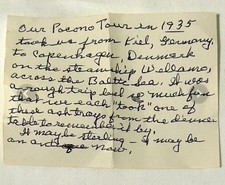 Our Pocono Tour in 1935
took us from Kiel, Germany,
to Copenhagen, Denmark
on the steamship Wollamo,
across the Baltic Sea. It was
a rough trip but so much fun
that we each "took" one of
these ashtrays from the dinner
table to remember it by.
It maybe sterling - it may be
an antique now.